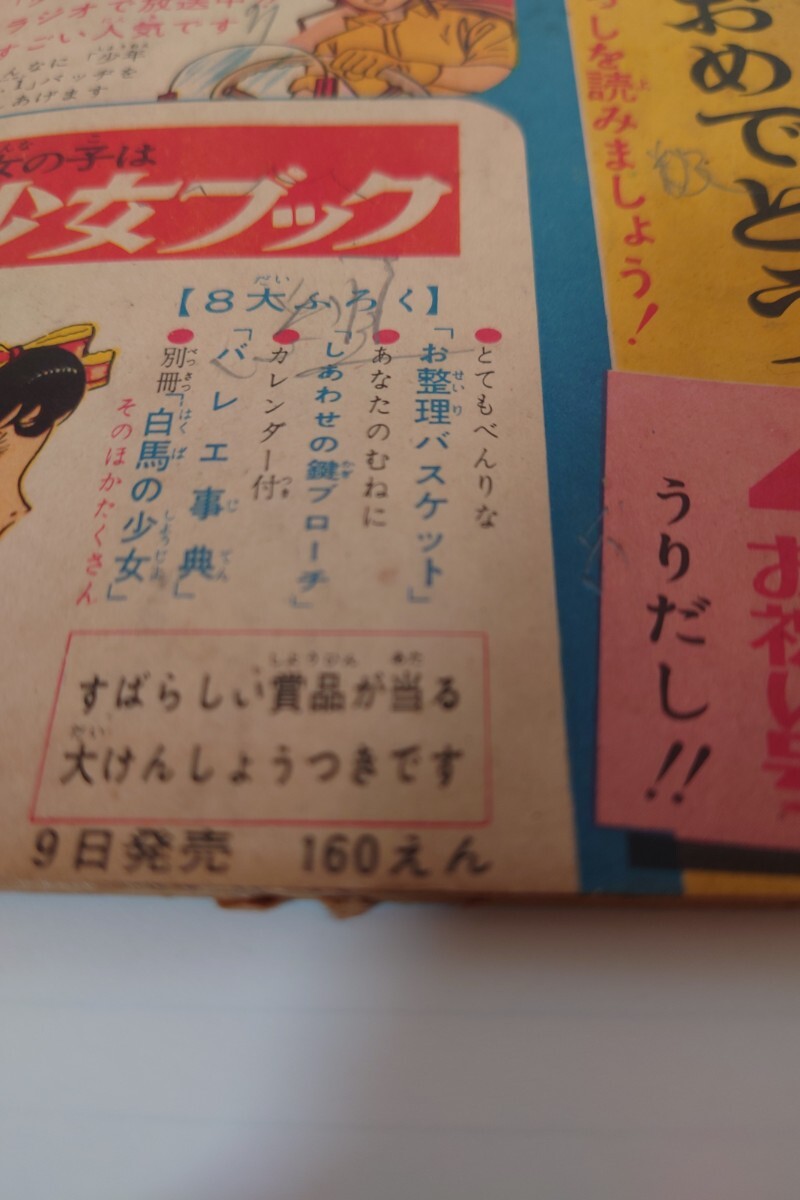 ラジオで放送中
すごい人気です
んなに「少年
マッチを
あげます
女の子は
少女ブック
【8大ふろく】
●とてもべんりな
「お整理バスケット」
●あなたのむねに
「しあわせの鍵ブローチ」
●カレンダー付
「バレエ事典」
●別冊「白馬の少女」
そのほかたくさん
すばらしい賞品が当る
大けんしょうつきです
9日発売 160えん
おめでとう
しを読みましょう!
お祝い号
うりだし!!